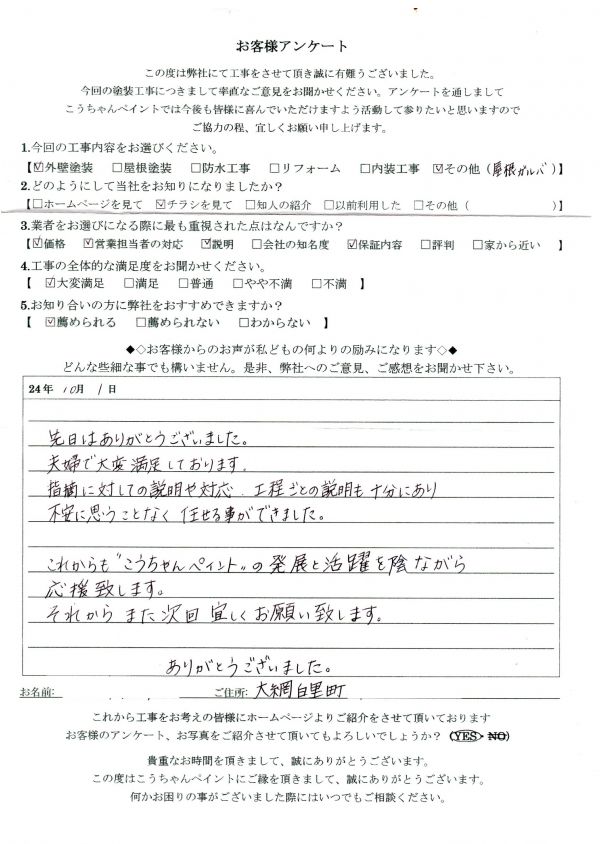 お客様アンケート
この度は弊社にて工事をさせて頂き誠に有難うございました。
今回の塗装工事につきまして率直なご意見をお聞かせください。アンケートを通しまして
こうちゃんペイントでは今後も皆様に喜んでいただけますよう活動して参りたいと思いますので
ご協力の程、宜しくお願い申し上げます。
1.今回の工事内容をお選びください。
【☑外壁塗装 □屋根塗装 □防水工事 □リフォーム □内装工事 ☑その他（屋根ガルバ）】
2.どのようにして当社をお知りになりましたか？
【□ホームページを見て ☑チラシを見て □知人の紹介 □以前利用した □その他（ ）】
3.業者をお選びになる際に最も重視された点はなんですか？
【☑価格 ☑営業担当者の対応 ☑説明 □会社の知名度 ☑保証内容 □評判 □家から近い 】
4.工事の全体的な満足度をお聞かせください。
【 ☑大変満足 □満足 □普通 □やや不満 □不満 】
5.お知り合いの方に弊社をおすすめできますか？
【 ☑薦められる □薦められない □わからない 】
◆◇お客様からのお声が私どもの何よりの励みになります◇◆
どんな些細な事でも構いません。是非、弊社へのご意見、ご感想をお聞かせ下さい。
24年 10月 1日
先日はありがとうございました。
夫婦で大変満足しております。
指摘に対しての説明や対応、工程ごとの説明も十分にあり
不安に思うことなく任せる事ができました。
これからも"こうちゃんペイント"の発展と活躍を陰ながら
応援致します。
それからまた次回宜しくお願い致します。
ありがとうございました。
お名前: ご住所: 大網白里町
これから工事をお考えの皆様にホームページよりご紹介をさせて頂いております
お客様のアンケート、お写真をご紹介させて頂いてもよろしいでしょうか？ (YES・NO)
貴重なお時間を頂きまして、誠にありがとうございます。
この度はこうちゃんペイントにご縁を頂きまして、誠にありがとうございます。
何かお困りの事がございました際にはいつでもご相談ください。